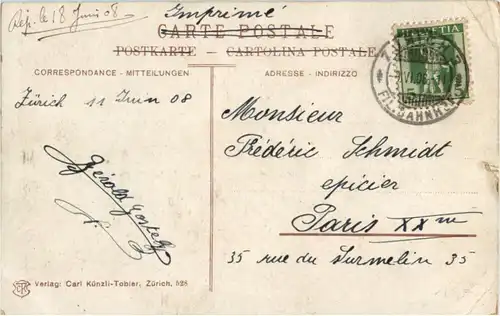 Rép. le 18 Juin 08
Imprimé
CARTE POSTALE
POSTKARTE - CARTOLINA POSTALE
HELVETIA
FIL. BAHNHOF
CORRESPONDANCE - MITTEILUNGEN
ADRESSE - INDIRIZZO
Zürich 11 Juin 08
Monsieur
Frédéric Schmidt
epicier
Paris XXme
35 rue du Surmelin 35
Gérald
Verlag: Carl Künzli-Tobler, Zürich, 528